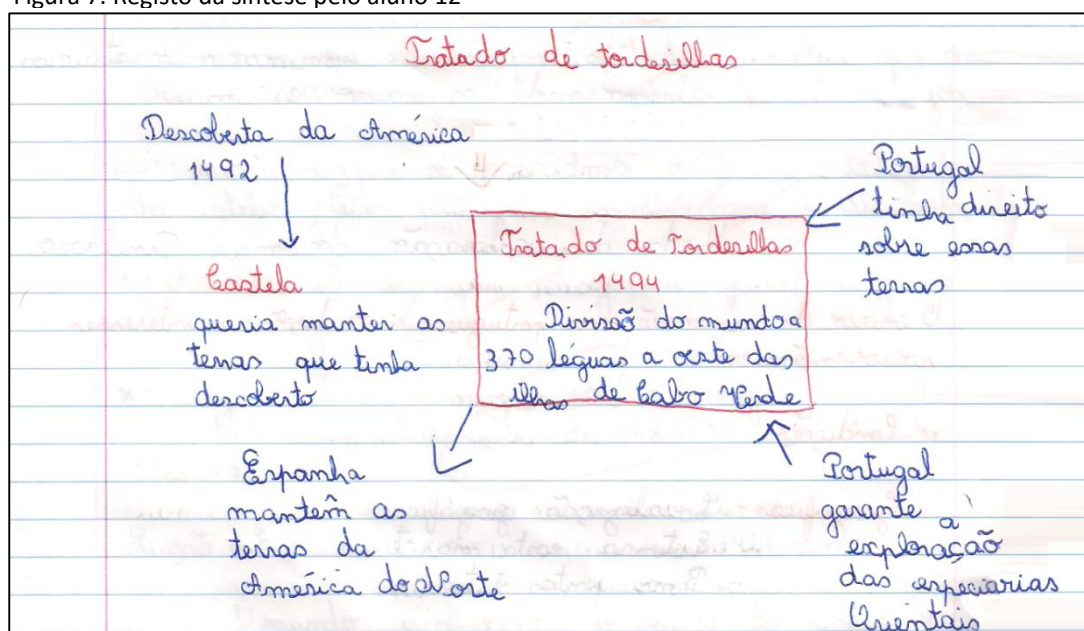 Figura 7. Registo da síntese pelo aluno 12
Tratado de tordesilhas
Descoberta da América
1492
Castela
queria manter as
terras que tinha
descoberto
Tratado de Tordesilhas
1494
Divisão do mundo a
370 léguas a oeste das
ilhas de Cabo Verde
Portugal
tinha direito
sobre essas
terras
Espanha
mantêm as
terras da
América do Norte
Portugal
garante
a
exploração
das especiarias
Orientais